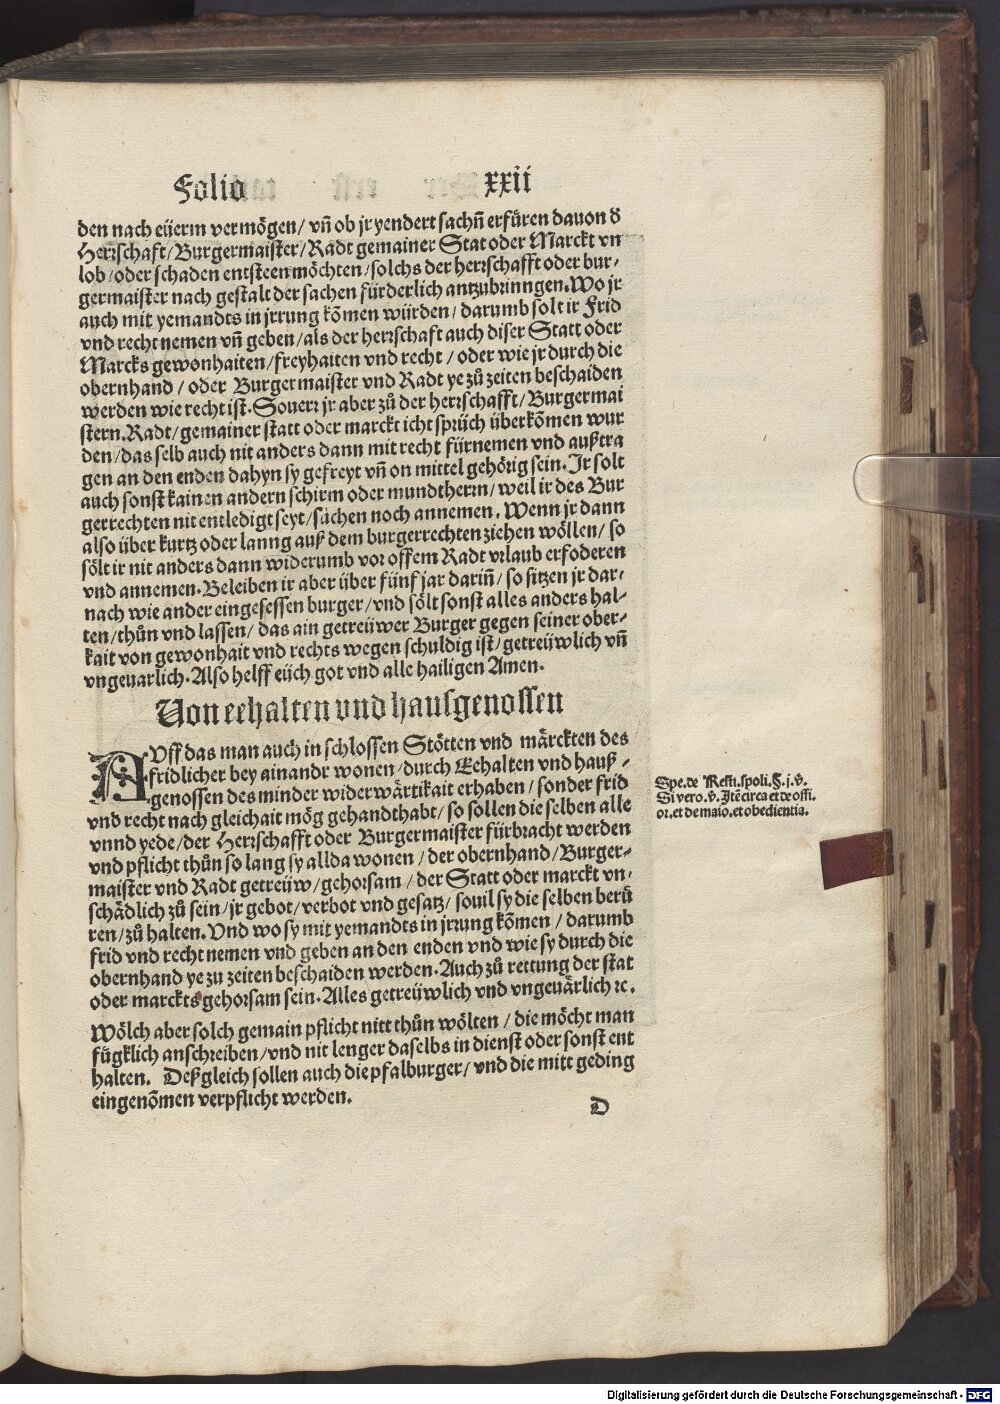 Folio xxii
den nach eüerm vermögen/ vñ ob jr yendert sachñ erfüren dauon d
Herrschaft/ Burgermaister/ Radt gemainer Stat oder Marckt vn
lob/ oder schaden entsteen möchten/ solchs der herrschafft oder bur-
germaister nach gestalt der sachen fürderlich antzubrinngen. Wo jr
auch mit yemandts in jrrung kõmen würden/ darumb solt ir Frid
vnd recht nemen vñ geben/ als der herrschaft auch diser Statt oder
Marcks gewonhaiten/ freyhaiten vnd recht/ oder wie jr durch die
obernhand/ oder Burgermaister vnd Radt ye zů zeiten beschaiden
werden wie recht ist. Souerr jr aber zů der herrschafft/ Burgermai
stern. Radt/ gemainer statt oder marckt icht sprüch überkõmen wur
den/ das selb auch nit anders dann mit recht fürnemen vnd außtra
gen an den enden dahyn sy gefreyt vñ on mittel gehörig sein. Ir solt
auch sonst kainen andern schirm oder mundtherrn/ weil ir des Bur
gerrechten nit entledigt seyt/ suchen noch annemen. Wenn jr dann
also über kurtz oder lanng auß dem burgerrechten ziehen wöllen/ so
sölt ir nit anders dann widerumb vor offem Radt vrlaub erfoderen
vnd annemen. Beleiben ir aber über fünf jar dariñ/ so sitzen jr dar-
nach wie ander eingesessen burger/ vnd sölt sonst alles anders hal-
ten/ thůn vnd lassen/ das ain getreüwer Burger gegen seiner ober-
kait von gewonhait vnd rechts wegen schuldig ist/ getreüwlich vñ
vngeuarlich. Also helff eüch got vnd alle hailigen Amen.
Von eehalten und hausgenossen
AUff das man auch in schlossen Stötten vnd märckten des
fridlicher bey ainandr wonen/ durch Eehalten vnd hauß-
genossen des minder widerwärtikait erhaben/ sonder frid
vnd recht nach gleichait mög gehandthabt/ so sollen die selben alle
vnnd yede/ der Herrschafft oder Burgermaister fürbracht werden
vnd pflicht thůn so lang sy allda wonen/ der obernhand/ Burger-
maister vnd Radt getreüw/ gehorsam/ der Statt oder marckt vn-
schädlich zů sein/ jr gebot/ verbot vnd gesatz/ souil sy die selben berü
ren/ zů halten. Vnd wo sy mit yemandts in jrrung kõmen/ darumb
frid vnd recht nemen vnd geben an den enden vnd wie sy durch die
obernhand ye zu zeiten beschaiden werden. Auch zů rettung der stat
oder marckts gehorsam sein. Alles getreüwlich vnd vngeuärlich ꝛc.
Wölch aber solch gemain pflicht nitt thůn wölten/ die möcht man
fůgklich anschreiben/ vnd nit lenger daselbs in dienst oder sonst ent
halten. Deßgleich sollen auch die pfalburger/ vnd die mitt geding
eingenõmen verpflicht werden.
D
Spe. de Resti. spoli. §. j. v̄.
Si vero. v̄. Itē circa et de offi.
or. et de maio. et obedientia.
Digitalisierung gefördert durch die Deutsche Forschungsgemeinschaft - DFG